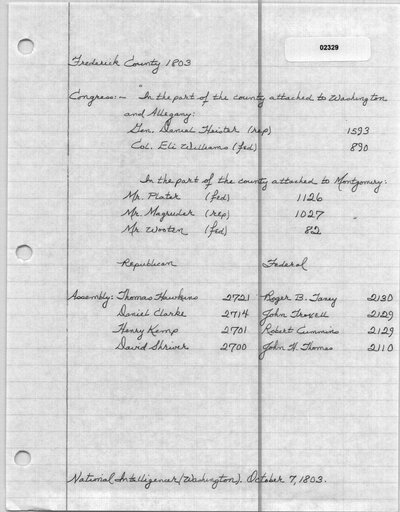 02329
Frederick County 1803
Congress:- "In the part of the county attached to Washington
and Allegany:
Gen. Daniel Heister (rep) 1593
Col. Eli Williams (fed) 890
In the part of the county attached to Montgomery:
Mr. Plater (fed) 1126
Mr. Magruder (rep) 1027 "
Mr. Wooten (fed) 82
Republican Federal
Assembly: Thomas Hawkins 2721 Roger B. Taney 2130
Daniel Clarke 2714 John Troxell 2129
Henry Kemp 2701 Robert Cummins 2129
David Shriver 2700 John H. Thomas 2110
National Intelligencer (Washington). October 7, 1803.